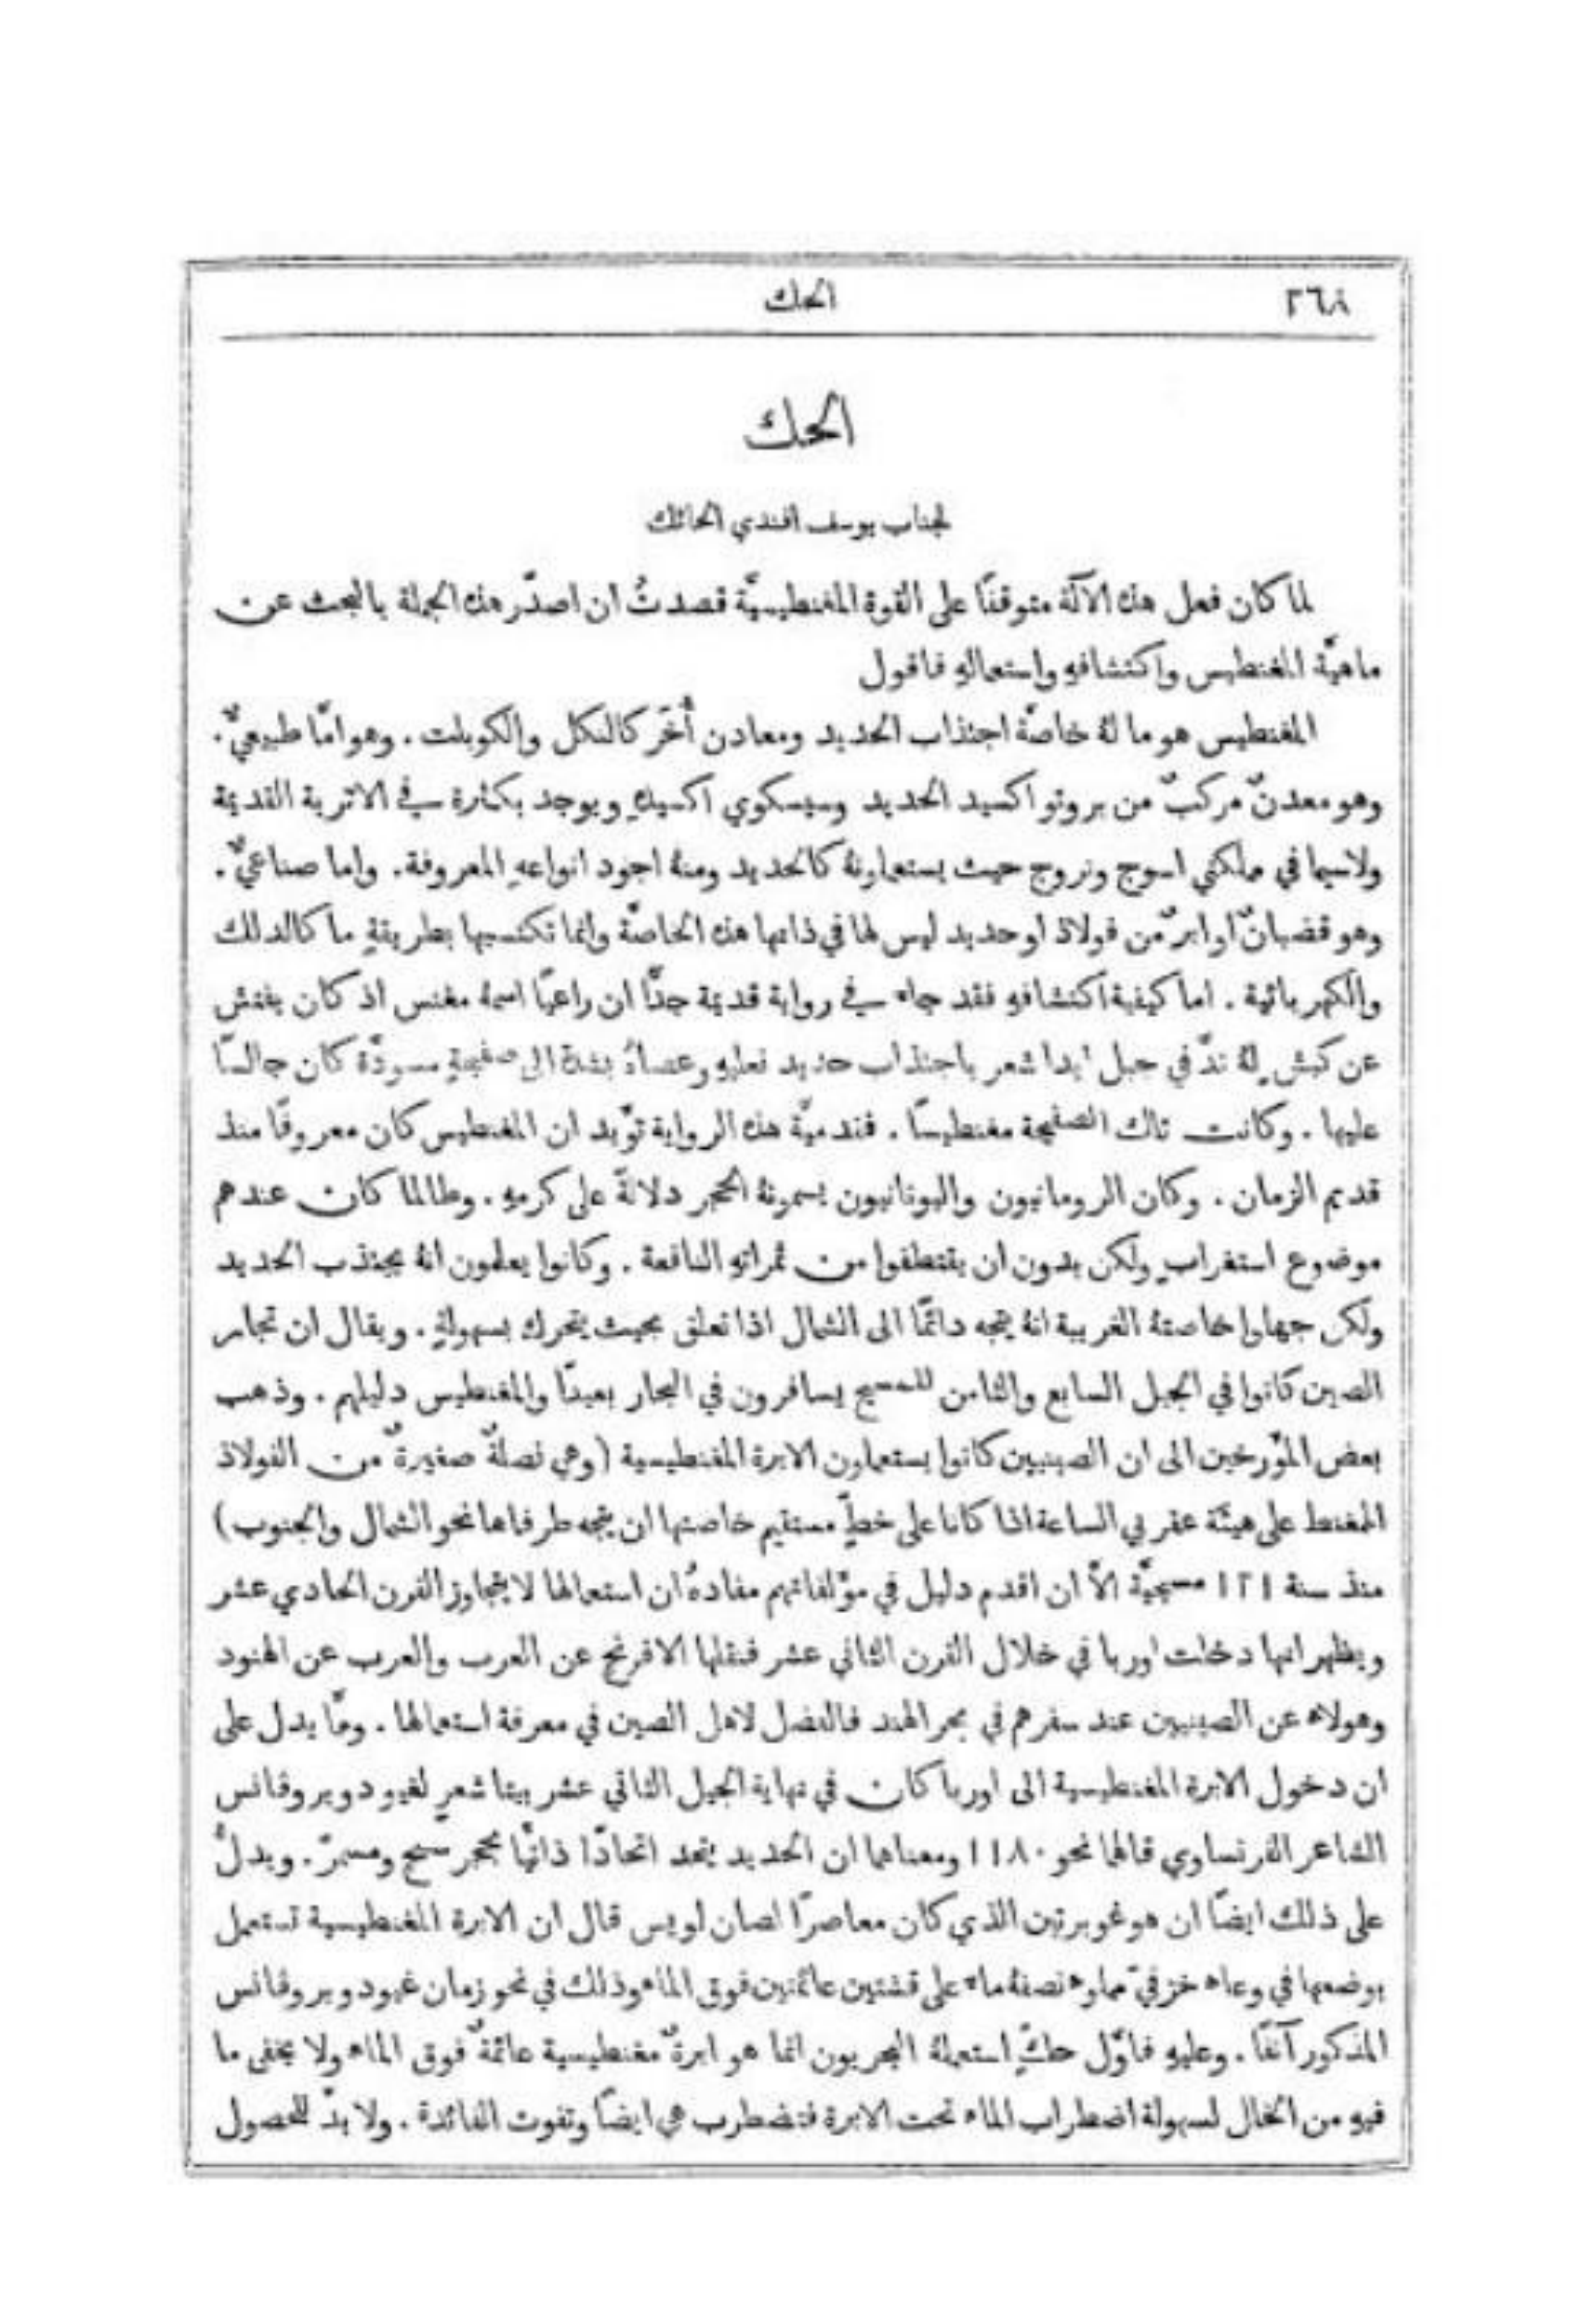 ٢٦٨
الحك
الحك
لجناب يوسف افندي الحائك
لما كان فعل هذه الآلة متوقفًا على القوة المغنطيسيّة قصدتُ ان اصدّر هذه الجملة بالبحث عن
ماهيّة المغنطيس واكتشافهِ واستعمالهِ فاقول
المغنطيس هو ما لهُ خاصّة اجتذاب الحديد ومعادن أُخَر كالنكل والكوبلت . وهو امّا طبيعيٌّ .
وهو معدنٌ مركبٌ من بروتو اكسيد الحديد وسيسكوي اكسيدهِ ويوجد بكثرة في الاتربة القديمة
ولاسيما في مملكتي اسوج ونروج حيث يستعملونهُ كالحديد ومنهُ اجود انواعهِ المعروفة . واما صناعيٌّ .
وهو قضبانٌ او ابرٌ من فولاذ او حديد ليس لها في ذاتها هذه الخاصّة وانما تكتسبها بطريقةٍ ما كالدلك
والكهربائية . اما كيفية اكتشافهِ فقد جاء في رواية قديمة جدًّا ان راعيًا اسمهُ مغنس اذ كان يفتش
عن كبشٍ لهُ ندّ في جبل ايدا شعر باجتذاب حديد نعليهِ وعصاهُ بشدة الى صفيحةٍ مسودّة كان جالسًا
عليها . وكانت تلك الصفيحة مغنطيسًا . فقدميّة هذه الرواية تؤيد ان المغنطيس كان معروفًا منذ
قديم الزمان . وكان الرومانيون واليونانيون يسمونهُ الحجر دلالةً على كرمهِ . وطالما كان عندهم
موضوع استغرابٍ ولكن بدون ان يقتطفوا من ثمراتهِ النافعة . وكانوا يعلمون انهُ يجتذب الحديد
ولكن جهلوا خاصتهُ الغريبة انهُ يتجه دائمًا الى الشمال اذا تعلق بحيث يتحرك بسهولةٍ . ويقال ان تجار
الصين كانوا في الجيل السابع والثامن للمسيح يسافرون في البحار بعيدًا والمغنطيس دليلهم . وذهب
بعض المؤرخين الى ان الصينيين كانوا يستعملون الابرة المغنطيسية (وهي نصلةٌ صغيرةٌ من الفولاذ
الممغنط على هيئة عقربي الساعة اذا كانا على خطٍّ مستقيم خاصتها ان يتجه طرفاها نحو الشمال والجنوب)
منذ سنة ١٢١ مسيحيَّة الَّا ان اقدم دليل في مؤلفاتهم مفادهُ ان استعمالها لا يتجاوز القرن الحادي عشر
ويظهر انها دخلت اوربا في خلال القرن الثاني عشر فنقلها الافرنج عن العرب والعرب عن الهنود
وهولاء عن الصينيين عند سفرهم في بحر الهند فالفضل لاهل الصين في معرفة استعمالها . وممَّا يدل على
ان دخول الابرة المغنطيسية الى اوربا كان في نهاية الجيل الثاني عشر بيتا شعرٍ لغيو دو بروفانس
الشاعر الفرنساوي قالهما نحو ١١٨٠ ومعناهما ان الحديد يتحد اتحادًا ذاتيًّا بحجر سمج ومسمرّ . ويدلُّ
على ذلك ايضًا ان هوغو برتين الذي كان معاصرًا لصان لويس قال ان الابرة المغنطيسية تستعمل
بوضعها في وعاء خزفيّ مملوء نصفهُ ماء على قشتين عائمتين فوق الماء وذلك في نحو زمان غيود و بروفانس
المذكور آنفًا . وعليهِ فاوّل حكٍّ استعملهُ البحريون انما هو ابرةٌ مغنطيسية عائمةٌ فوق الماء ولا يخفى ما
فيهِ من الخلل لسهولة اضطراب الماء تحت الابرة فتضطرب هي ايضًا وتفوت الفائدة . ولا بدّ للحصول